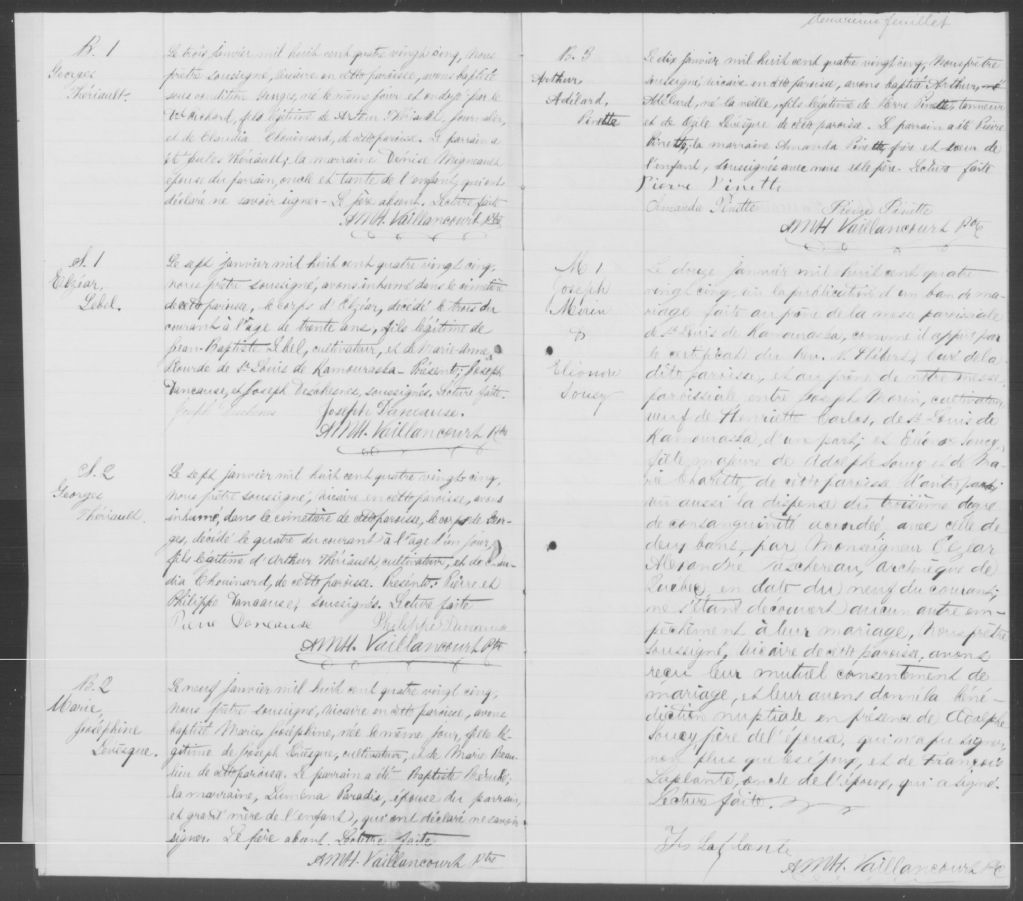 B. 1
Georges
Thériault.
Le trois janvier mil huit cent quatre vingt cinq, nous
prêtre soussigné, vicaire en cette paroisse, avons baptisé
sous condition Georges, né le même jour et ondoyé par le
Richard, fils légitime de Arthur Thériault, journalier,
et de Claudia Chouinard, de cette paroisse. Le parrain a
été Jules Thériault; la marraine Denise Migneault,
épouse du parrain, oncle et tante de l'enfant, qui ont
déclaré ne savoir signer. Le père absent. Lecture faite
AMH. Vaillancourt Ptre
S. 1
Elzéar,
Lebel.
Le sept janvier mil huit cent quatre vingt cinq,
nous prêtre soussigné, avons inhumé dans le cimetière
de cette paroisse, le corps d'Elzéar, décédé le trois du
courant à l'age de trente ans, fils légitime de
Jean-Baptiste Lebel, cultivateur, et de Marie-Anne
Plourde de St Louis de Kamouraska. Présents: Joseph
Dancause, et Joseph Deschesnes, soussignés. Lecture faite.
Joseph Dancause.
AMH. Vaillancourt Ptre
S. 2
Georges
Thériault.
Le sept janvier mil huit cent quatre vingt cinq,
nous prêtre soussigné, vicaire en cette paroisse, avons
inhumé, dans le cimetière de cette paroisse, le corps de Geor-
ges, décédé le quatre du courant à l'age d'un jour,
fils légitime d'Arthur Thériault, cultivateur, et de Clau-
dia Chouinard, de cette paroisse. Présents: Pierre et
Philippe Dancause, soussignés. Lecture faite
Pierre Dancause Philippe Dancause
AMH. Vaillancourt Ptre
B. 2
Marie,
Joséphine
Levesque.
Le neuf janvier mil huit cent quatre vingt cinq,
nous prêtre soussigné, vicaire en cette paroisse, avons
baptisé Marie, Joséphine, née le même jour, fille lé-
gitime de Joseph Levesque, cultivateur, et de Marie Beau-
lieu de cette paroisse. Le parrain a été Baptiste
la marraine, Luména Paradis, épouse du parrain,
et grand'mère de l'enfant, qui ont déclaré ne savoir
signer. Le père absent. Lecture faite
AMH. Vaillancourt Ptre
deuxième feuillet
B. 3
Arthur,
Adélard,
Pinette
Le dix janvier mil huit cent quatre vingt cinq, nous prêtre
soussigné vicaire en cette paroisse, avons baptisé Arthur,
Adélard, né la veille, fils légitime de Pierre Pinette, tanneur
et de Levesque de cette paroisse. Le parrain a été Pierre
Pinette, la marraine Amanda Pinette, frère et soeur de
l'enfant, soussignés avec nous et le père. Lecture faite
Pierre Pinette
Amanda Pinette Pinette
AMH. Vaillancourt Ptre
M. 1
Joseph
Morin
&
Eléonore
Soucy
Le douze janvier mil huit cent quatre
vingt cinq, vu la publication d'un ban de ma-
riage faite au prône de la messe paroissiale
de St Louis de Kamouraska, comme il appert par
le certificat du Rev. Curé de la
dite paroisse, et au prône de notre messe
paroissiale entre Joseph Morin, cultivateur,
veuf de Henriette Carlos, de St Louis de
Kamouraska, d'un part; et Eléonore Soucy,
fille majeure de Adolphe Soucy et de Ma-
rie Charette, de cette paroisse d'autre part;
vu aussi la dispense du troisième degré
de consanguinité accordée, avec celle de
deux bans, par Monseigneur Elzéar
Alexandre Taschereau, archevêque de
Québec, en date du neuf du courant;
ne s'étant découvert aucun autre em-
pêchement à leur mariage, nous prêtre
soussigné, vicaire de cette paroisse, avons
reçu leur mutuel consentement de
mariage, et leur avons donné la béné-
diction nuptiale en présence de Adolphe
Soucy, père de l'épouse, qui n'a pu signer,
non plus que les époux, et de François
Laplante, oncle de l'époux, qui a signé.
Lecture faite.
Frs Laplante
AMH. Vaillancourt Ptre